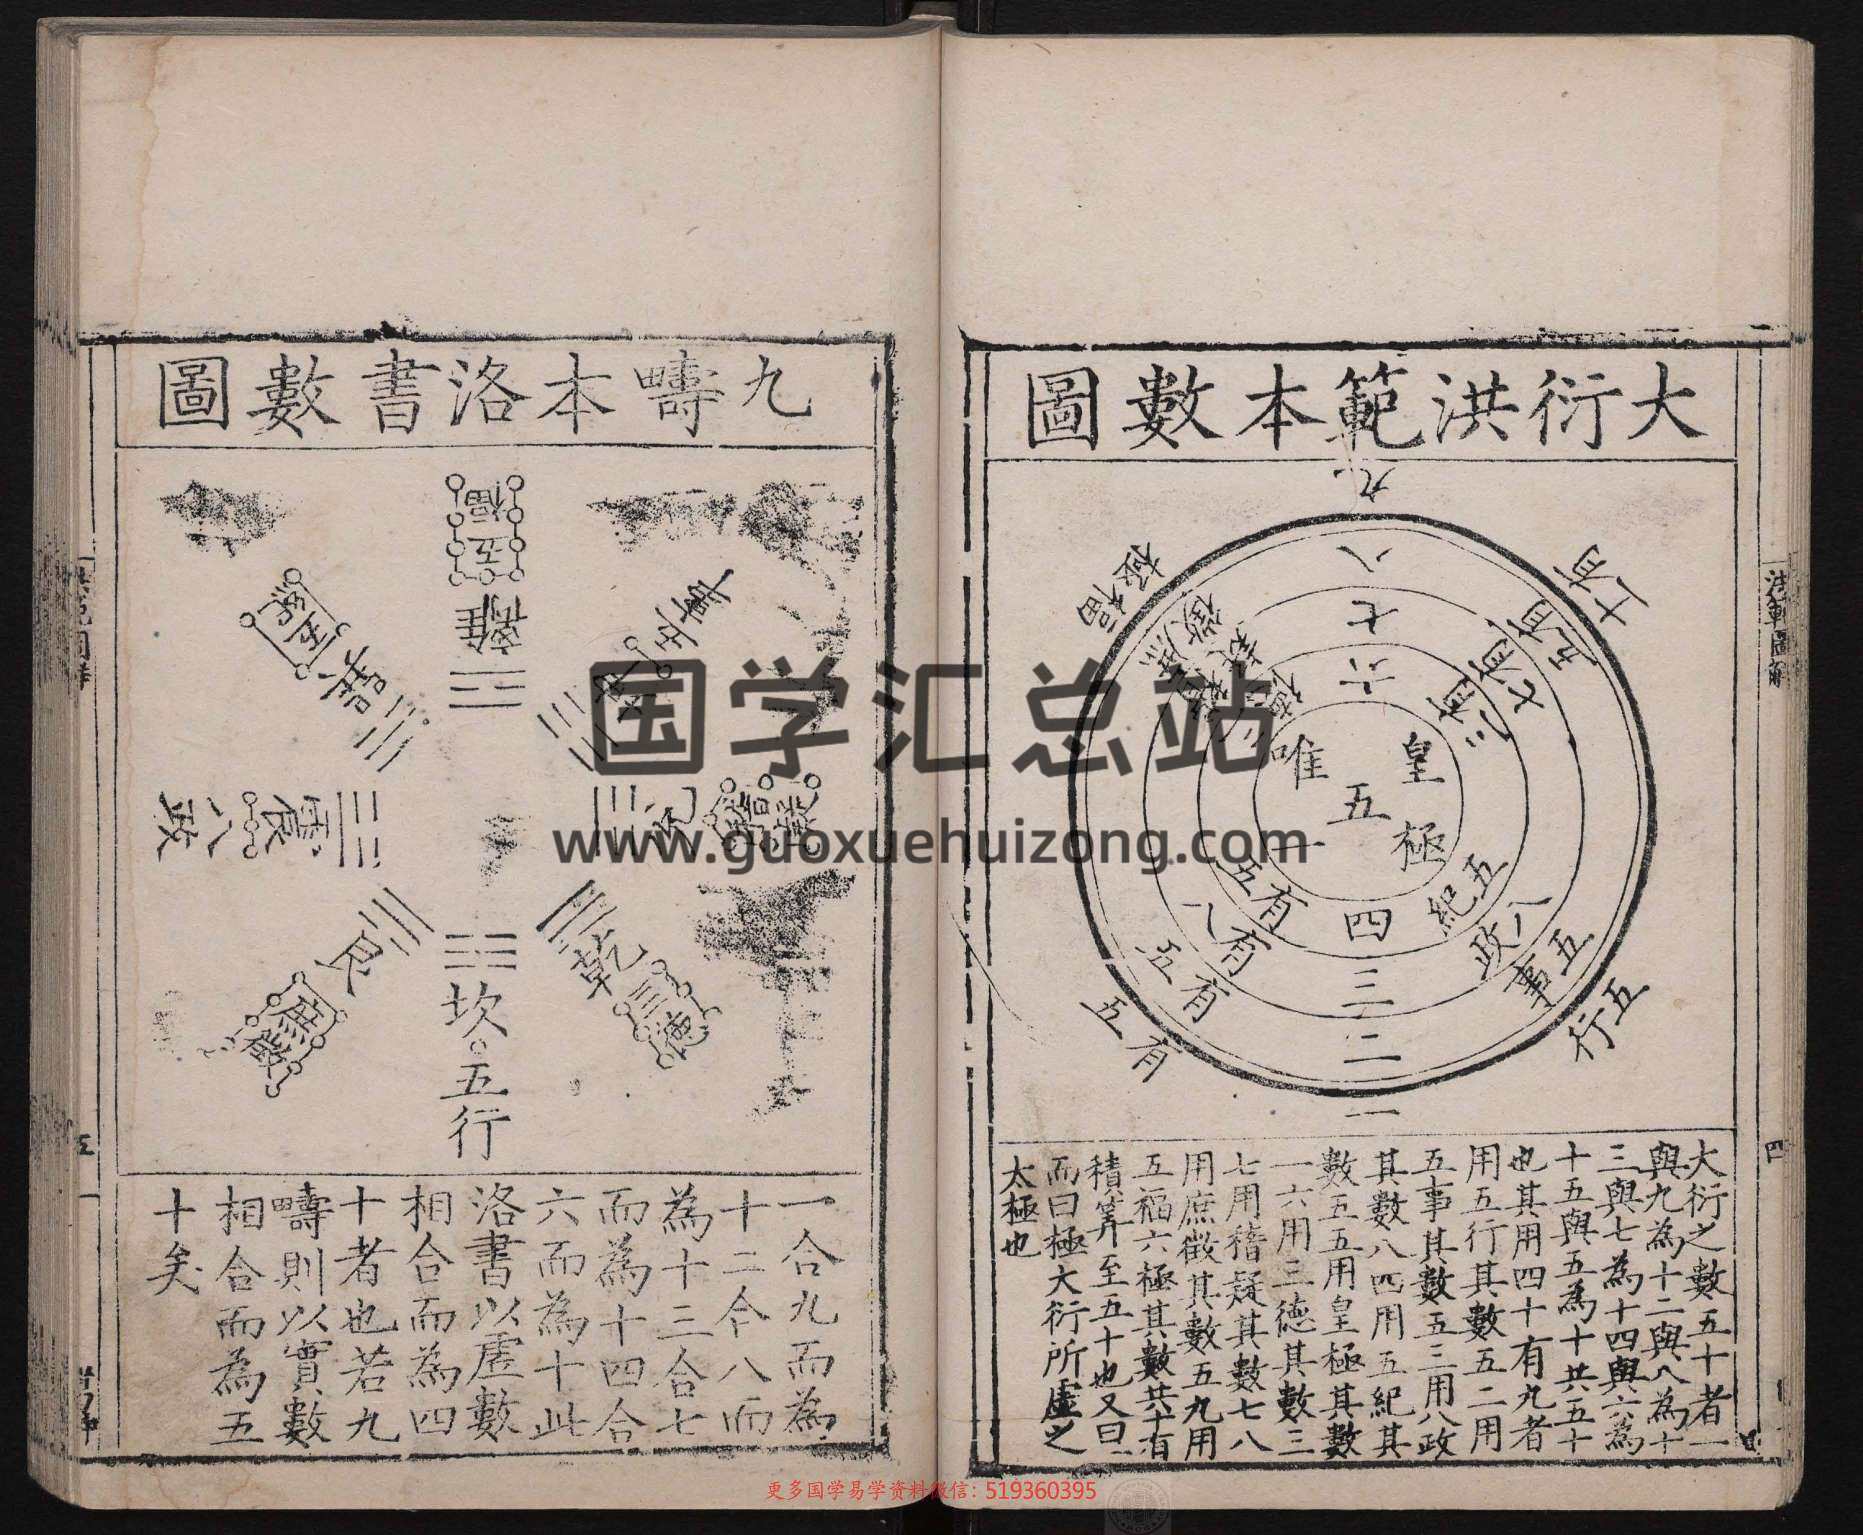 大衍洪範本數圖
九
八
七
六
皇極
唯
五
一
四
三
二
一
福極
庶徵
稽疑
五紀
八政
五事
五行
有五
有八
有五
有五
大衍之數五十者一
與九為十二與八為十
三與七為十四與六為
十五與五為十共五十
也其用四十有九者
用五行其數五二用
五事其數五三用八政
其數八四用五紀其
數五五用皇極其數
一六用三德其數三
七用稽疑其數七八
用庶徵其數五九用
五福六極其數共十有
積筭至五十也又曰一
而曰極大衍所虛之
太極也
四
九疇本洛書數圖
五福
離
坤
巽
震
八政
兌
稽疑
艮
庶徵
坎
五行
乾
三德
一合九而為
十二合八而
為十三合七
而為十四合
六而為十此
洛書以虛數
相合而為四
十者也若九
疇則以實數
相合而為五
十矣
五
国学汇总站
www.guoxuehuizong.com
更多国学易学资料微信：519360395